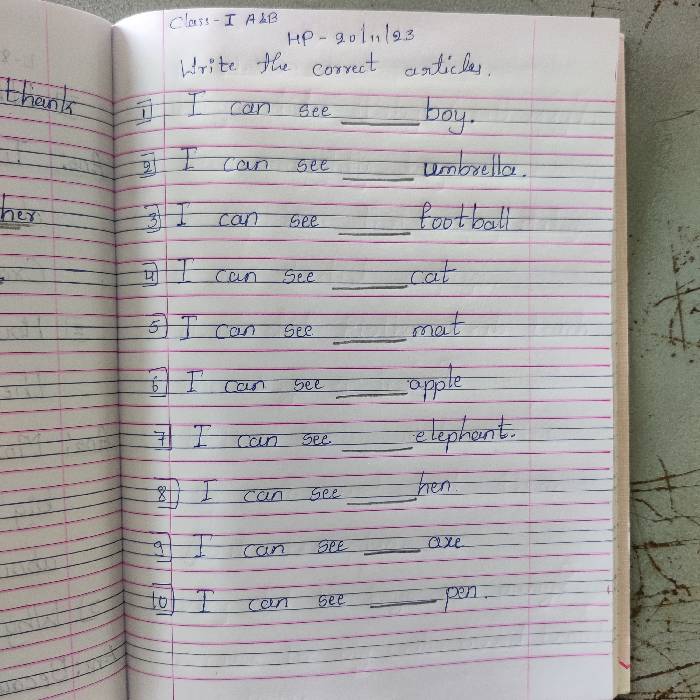 thank
her
Class - I A&B
HP - 20/11/23
Write the correct articles.
1) I can see ______ boy.
2) I can see ______ umbrella.
3) I can see ______ football
4) I can see ______ cat
5) I can see ______ mat
6) I can see ______ apple
7) I can see ______ elephant.
8) I can see ______ hen
9) I can see ______ axe
10) I can see ______ pen.